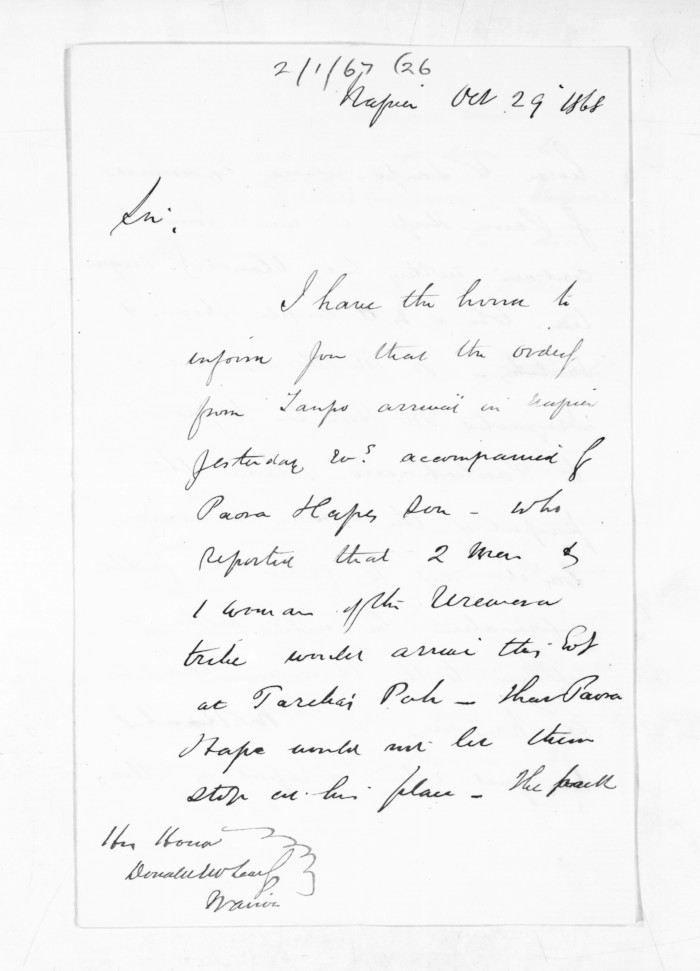 2/1/67 (26
Napier Oct 29 1868
Sir,
I have the honor to
inform you that the orderly
from Taupo arrived in Napier
yesterday Evg accompanied by
Paora Hapes Son - who
reported that 2 Men &
1 woman of the Urewera
tribe would arrive this Evg
at Tareha's Pah - that Paora
Hape would not let them
stop at his place - The
His Honor
Donald McLean
Wairoa